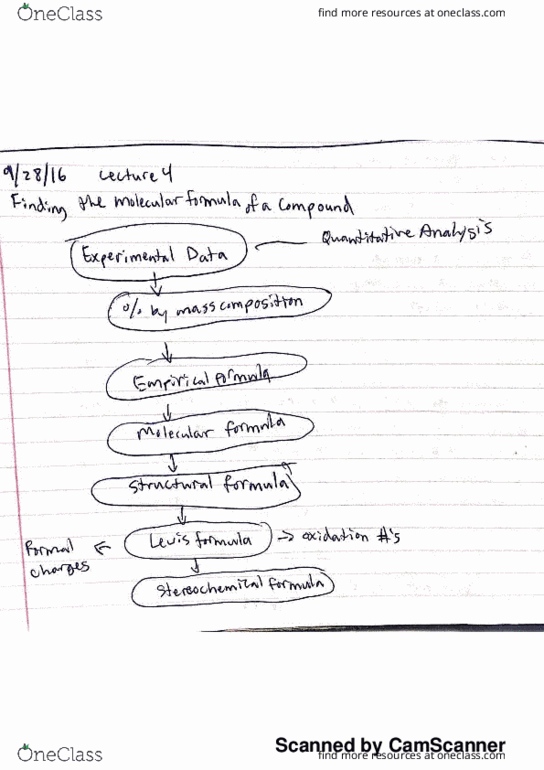 OneClass
find more resources at oneclass.com
9/28/16 Lecture 4
Finding the molecular formula of a compound
Experimental Data
Quantitative Analysis
% by mass composition
Empirical formula
Molecular formula
Structural formula
Lewis formula
→ oxidation #'s
← Formal charges
Stereochemical formula
Scanned by CamScanner
OneClass
find more resources at oneclass.com